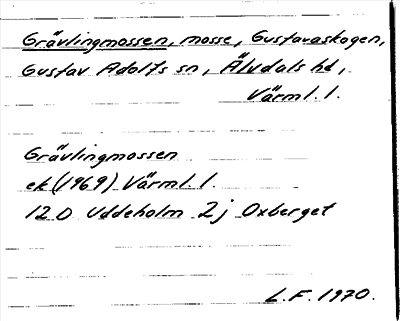 Grävlingmossen, mosse, Gustavaskogen,
Gustav Adolfs sn, Älvdals hd,
Värml. l.
Grävlingmossen
ek (1969) Värml. l.
12 D Uddeholm 2j Oxberget
L.F. 1970.